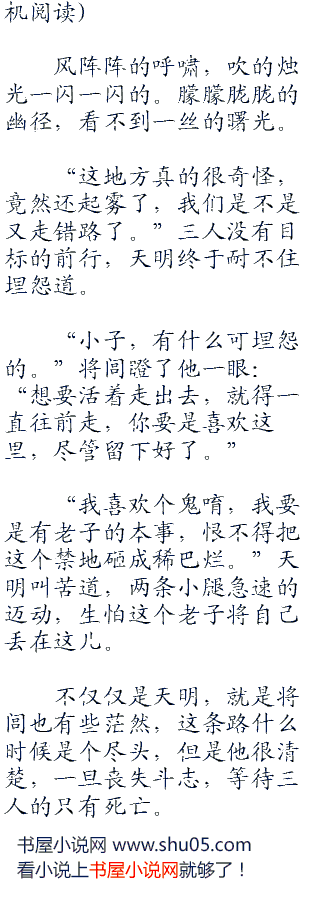 机阅读)
风阵阵的呼啸，吹的烛
光一闪一闪的。朦朦胧胧的
幽径，看不到一丝的曙光。
“这地方真的很奇怪，
竟然还起雾了，我们是不是
又走错路了。”三人没有目
标的前行，天明终于耐不住
埋怨道。
“小子，有什么可埋怨
的。”将闾瞪了他一眼：
“想要活着走出去，就得一
直往前走，你要是喜欢这
里，尽管留下好了。”
“我喜欢个鬼唷，我要
是有老子的本事，恨不得把
这个禁地砸成稀巴烂。”天
明叫苦道，两条小腿急速的
迈动，生怕这个老子将自己
丢在这儿。
不仅仅是天明，就是将
闾也有些茫然，这条路什么
时候是个尽头，但是他很清
楚，一旦丧失斗志，等待三
人的只有死亡。
书屋小说网 www.shu05.com
看小说上书屋小说网就够了！